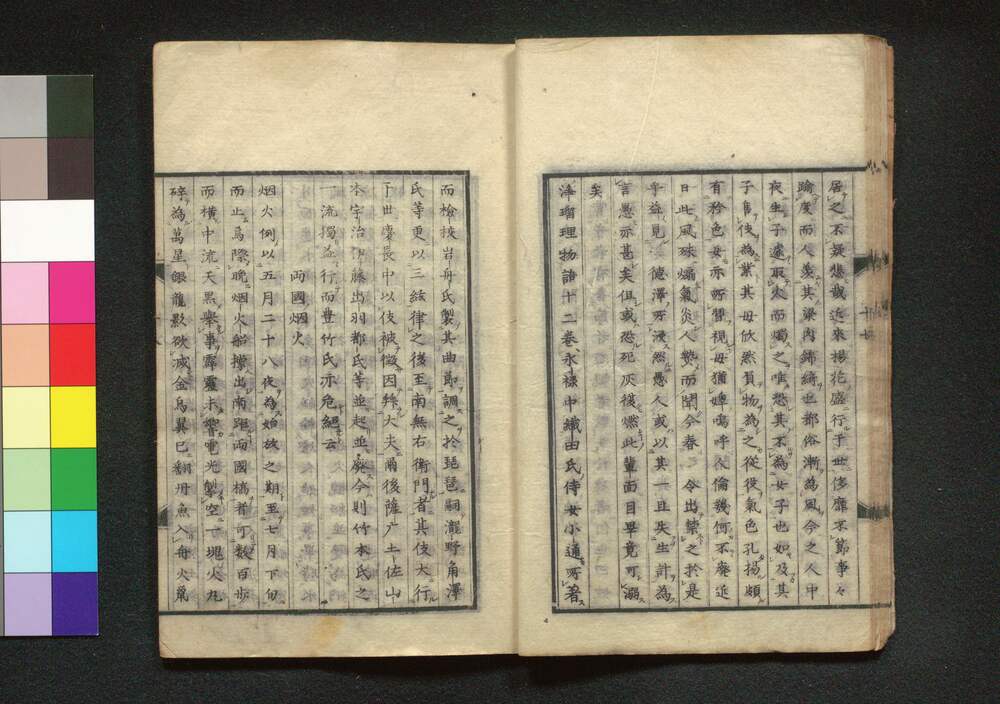 居之不疑悲哉近來楊花盛行于世侈靡不節事々
踰度而人羨其梁肉錦綺也鄙俗漸為風今之人中
夜生子遽取火而燭之唯恐其不為女子也如及其
子售伎為業其母欣然預物為之從役氣色孔揚頗
有矜色女亦所瞽視毋猶嫂嗚呼人倫幾何不廢近
日此風殊煽氣炎人熱而聞今春令出禁之於是
乎益見德澤所浸然愚人或以其一旦失生計為
言愚亦甚矣俱或恐死灰復燃此輩面目畢竟可溺
矣
淨瑠理物語十二卷永祿中織田氏侍女小通所著
而檢校岩舟氏製其曲節調之於琵琶嗣瀧野角澤
氏等更以三絃律之後至南無右衛門者其伎大行
于世慶長中以伎被徵因稱大夫爾後薩广土佐山
本宇治伊藤出羽都氏等並起並廢今則竹本氏之
一流獨益行而豊竹氏亦危絕云
兩國烟火
烟火例以五月二十八夜為始放之期至七月下旬
而止焉際晚烟火船撐出南距兩國橋者可數百步
而橫中流天黑舉事霹靂未響電光掣空一塊火丸
碎為萬星銀龍影欲滅金烏翼已翻丹魚入舟火鼠